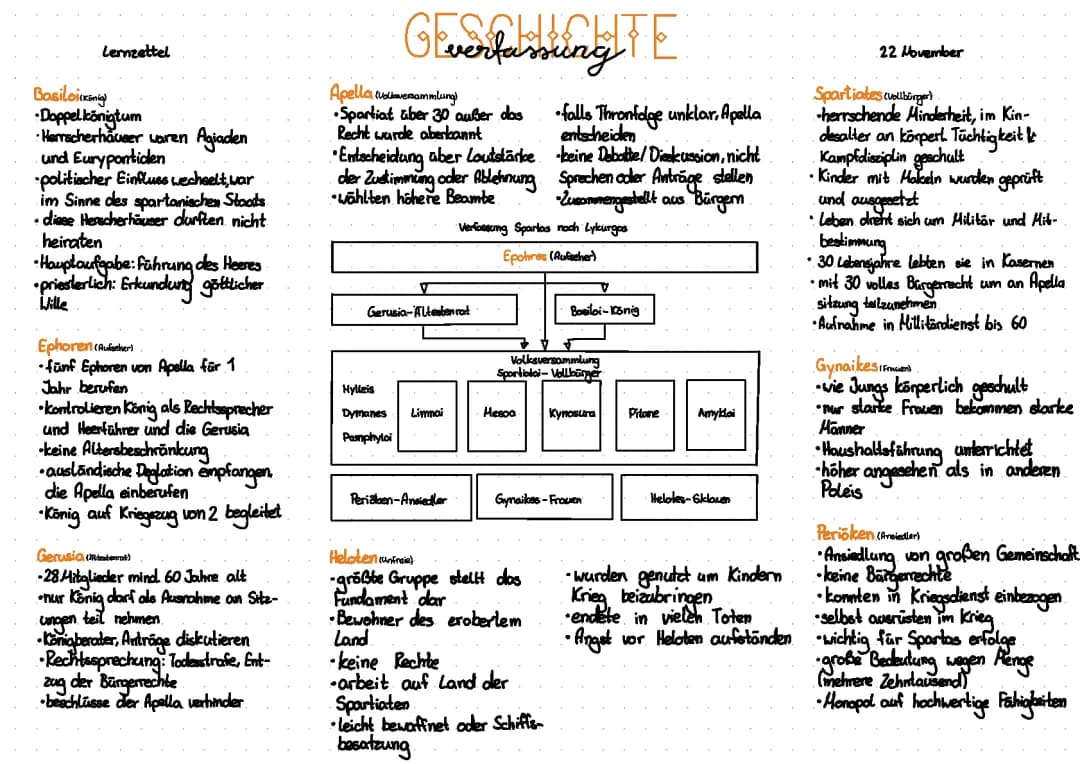 Lernzettel
GESCHICHTE
verfassung
22 November
Basiloi (König)
•Doppelkönigtum
•Herrscherhäuser waren Agiaden
und Eurypontiden
•politischer Einfluss wechselt, war
im Sinne des spartanischen Staats
•diese Herscherhäuser durften nicht
heiraten
•Hauptaufgabe: Führung des Heeres
•priesterlich: Erkundung göttlicher
Wille
Ephoren (Aufseher)
•fünf Ephoren von Apella für 1
Jahr berufen
•kontrolieren König als Rechtssprecher
und Heerführer und die Gerusia
•keine Altersbeschränkung
•ausländische Deglation empfangen,
die Apella einberufen
•König auf Kriegszug von 2 begleitet
Gerusia (Ältestenrat)
•28 Mitglieder mind. 60 Jahre alt
•nur König darf als Ausnahme an Sitz-
ungen teil nehmen
•Königberater, Anträge diskutieren
•Rechtssprechung: Todesstrafe, Ent-
zug der Bürgerrechte
•beschlüsse der Apella verhinder
Apella (Volksversammlung)
•Spartiat über 30 außer das
Recht wurde aberkannt
•Entscheidung über Lautstärke
der Zustimmung oder Ablehnung
•wählten höhere Beamte
•falls Thronfolge unklar, Apella
entscheiden
•keine Debatte/ Disskussion, nicht
Sprechen oder Anträge stellen
•Zusammengestellt aus Bürgern
Verfassung Spartas nach Lykurgos
Epohres (Aufseher)
Gerusia-Ältestenrat
Basiloi-König
Volksversammlung
Spartiatai- Vollbürger
Hylleis
Dymanes
Pamphyloi
Limnai
Mesoa
Kynosura
Pitane
Amyklai
Periöken-Ansiedler
Gynaikes-Frauen
Helotes-Sklaven
Heloten (Unfreie)
•größte Gruppe stellt das
Fundament dar
•Bewohner des eroberten
Land
•keine Rechte
•arbeit auf Land der
Spartiaten
•leicht bewaffnet oder Schiffs-
besatzung
•wurden genutzt um Kindern
Krieg beizubringen
•endete in vielen Toten
•Angst vor Heloten aufständen
Spartiates (Vollbürger)
•herrschende Minderheit, im Kin-
desalter an körperl. Tüchtigkeit &
Kampfdisziplin geschult
•Kinder mit Makeln wurden geprüft
und ausgesetzt
•Leben dreht sich um Militär und Mit-
bestimmung
•30 Lebensjahre lebten sie in Kasernen
•mit 30 volles Bürgerrecht um an Apella
sitzung teilzunehmen
•Aufnahme in Millitärdienst bis 60
Gynaikes (Frauen)
•wie Jungs körperlich geschult
•nur starke Frauen bekommen starke
Männer
•Haushaltsführung unterrichtet
•höher angesehen als in anderen
Poleis
Periöken (Ansiedler)
•Ansiedlung von großen Gemeinschaft
•keine Bürgerrechte
•konnten in Kriegsdienst einbezogen
•selbst ausrüsten im Krieg
•wichtig für Spartas erfolge
•große Bedeutung wegen Menge
(mehrere Zehntausend)
•Monopol auf hochwertige Fähigkeiten